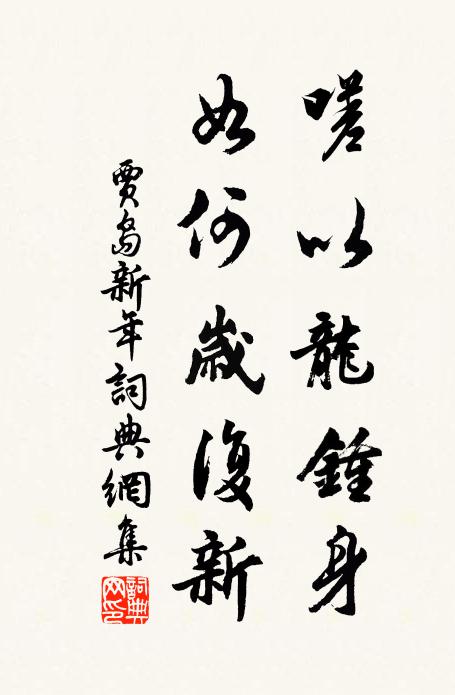 嗟以龍鍾身
如何歲復新
賈島新年詞典網集
詞典網印